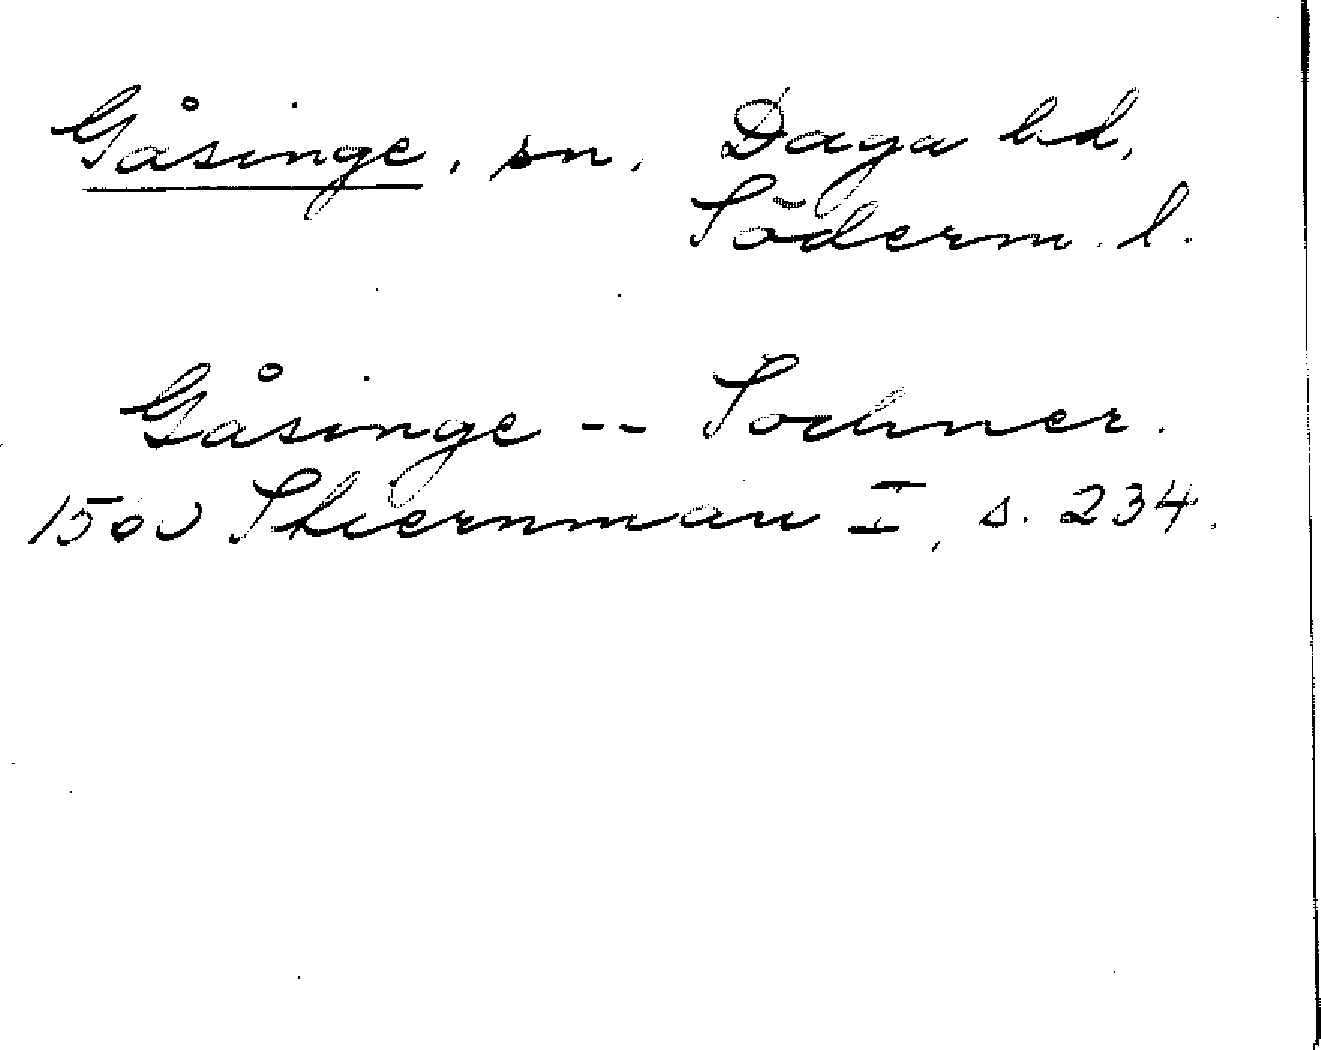 Gåsinge, sn, Daga hd,
Söderm. l.
Gåsinge -- Sochner.
1500 Stiernman I, s. 234.